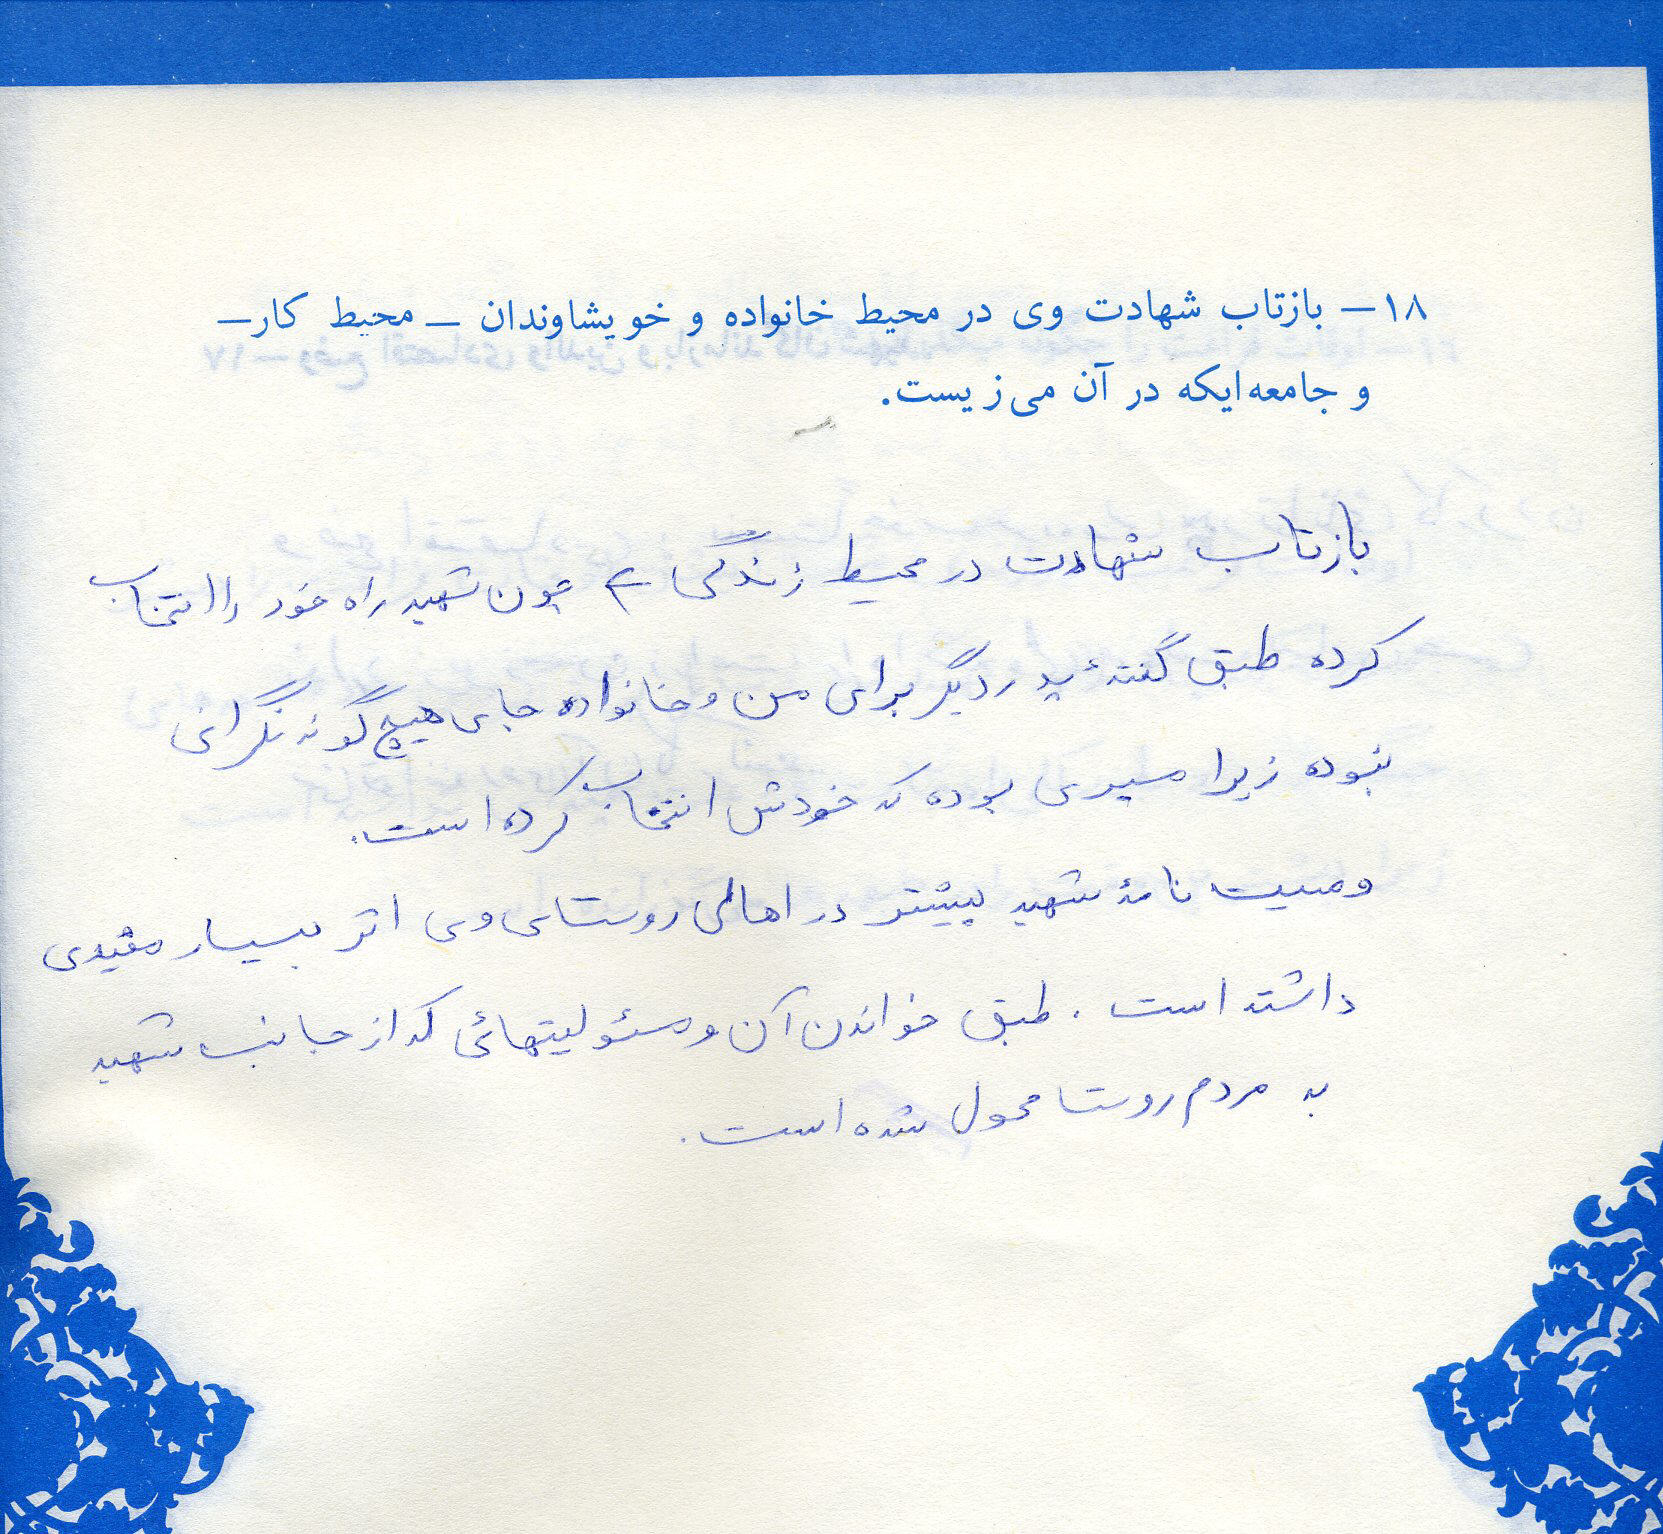 ۱۸– بازتاب شهادت وی در محیط خانواده و خویشاوندان – محیط کار–
و جامعه‌ایکه در آن می‌زیست.
بازتاب شهادت در محیط زندگی چون شهید راه خود را انتخاب
کرده طبق گفتهٔ پدر دیگر برای من و خانواده جای هیچ گونه نگرانی
نبوده زیرا مسیری بوده که خودش انتخاب کرده است.
وصیت نامهٔ شهید بیشتر در اهالی روستای وی اثر بسیار مفیدی
داشته است . طبق خواندن آن و مسئولیتهائی که از جانب شهید
به مردم روستا محول شده است .